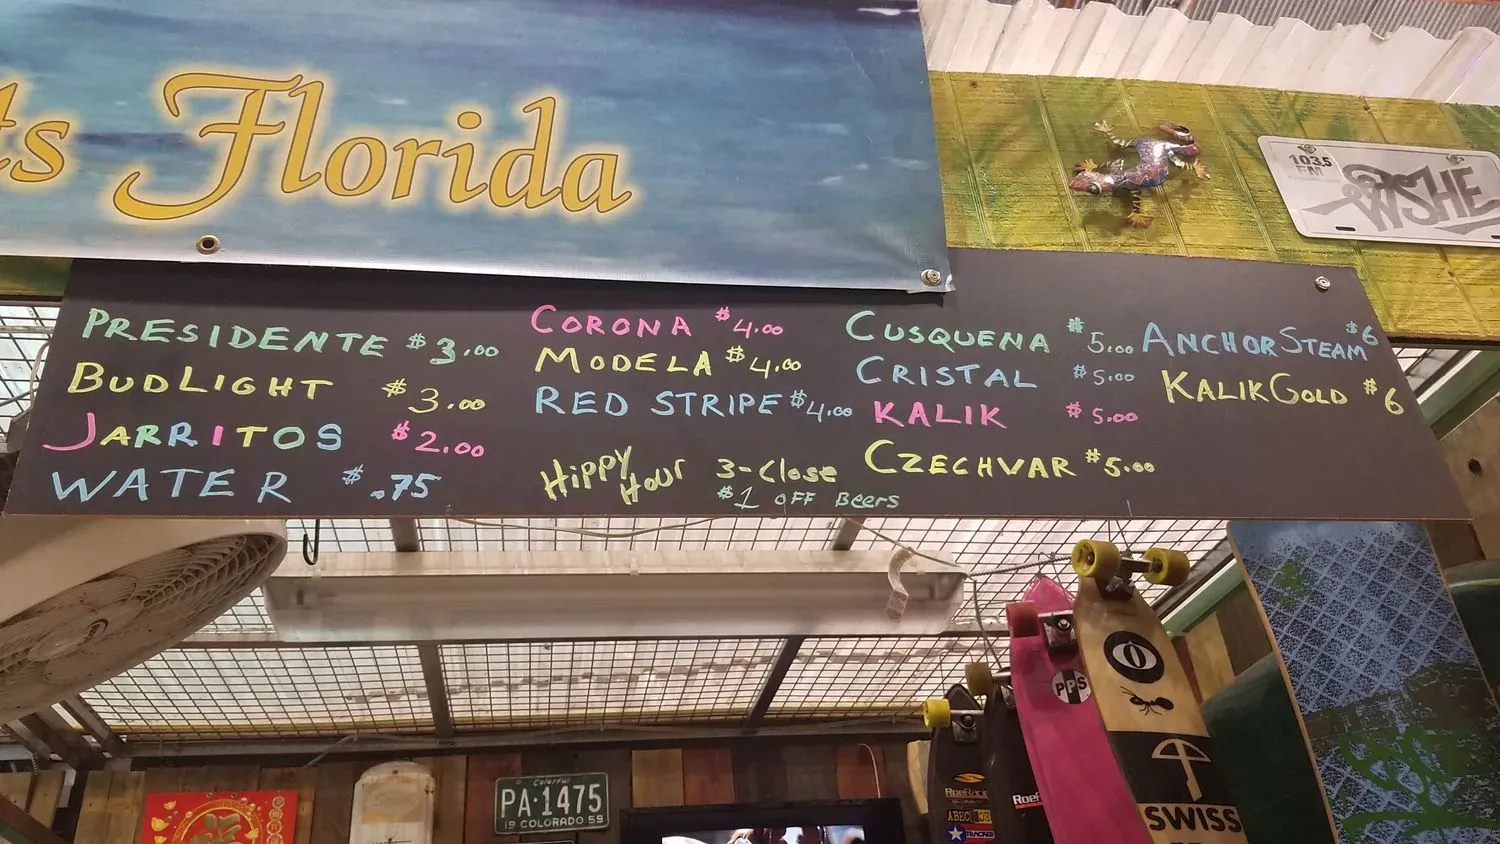 ts Florida
103.5
FM
SHE
PRESIDENTE $3.00
BUDLIGHT $3.00
JARRITOS $2.00
WATER $.75
CORONA $4.00
MODELA $4.00
RED STRIPE $4.00
HIPPY HOUR 3-Close
$1 OFF Beers
CUSQUENA $5.00
CRISTAL $5.00
KALIK $5.00
CZECHVAR $5.00
ANCHOR STEAM $6
KALIK GOLD $6
Colorful
PA·1475
19 COLORADO 59
PPS
SWISS
RoeRacing
ABEC
TRACKER